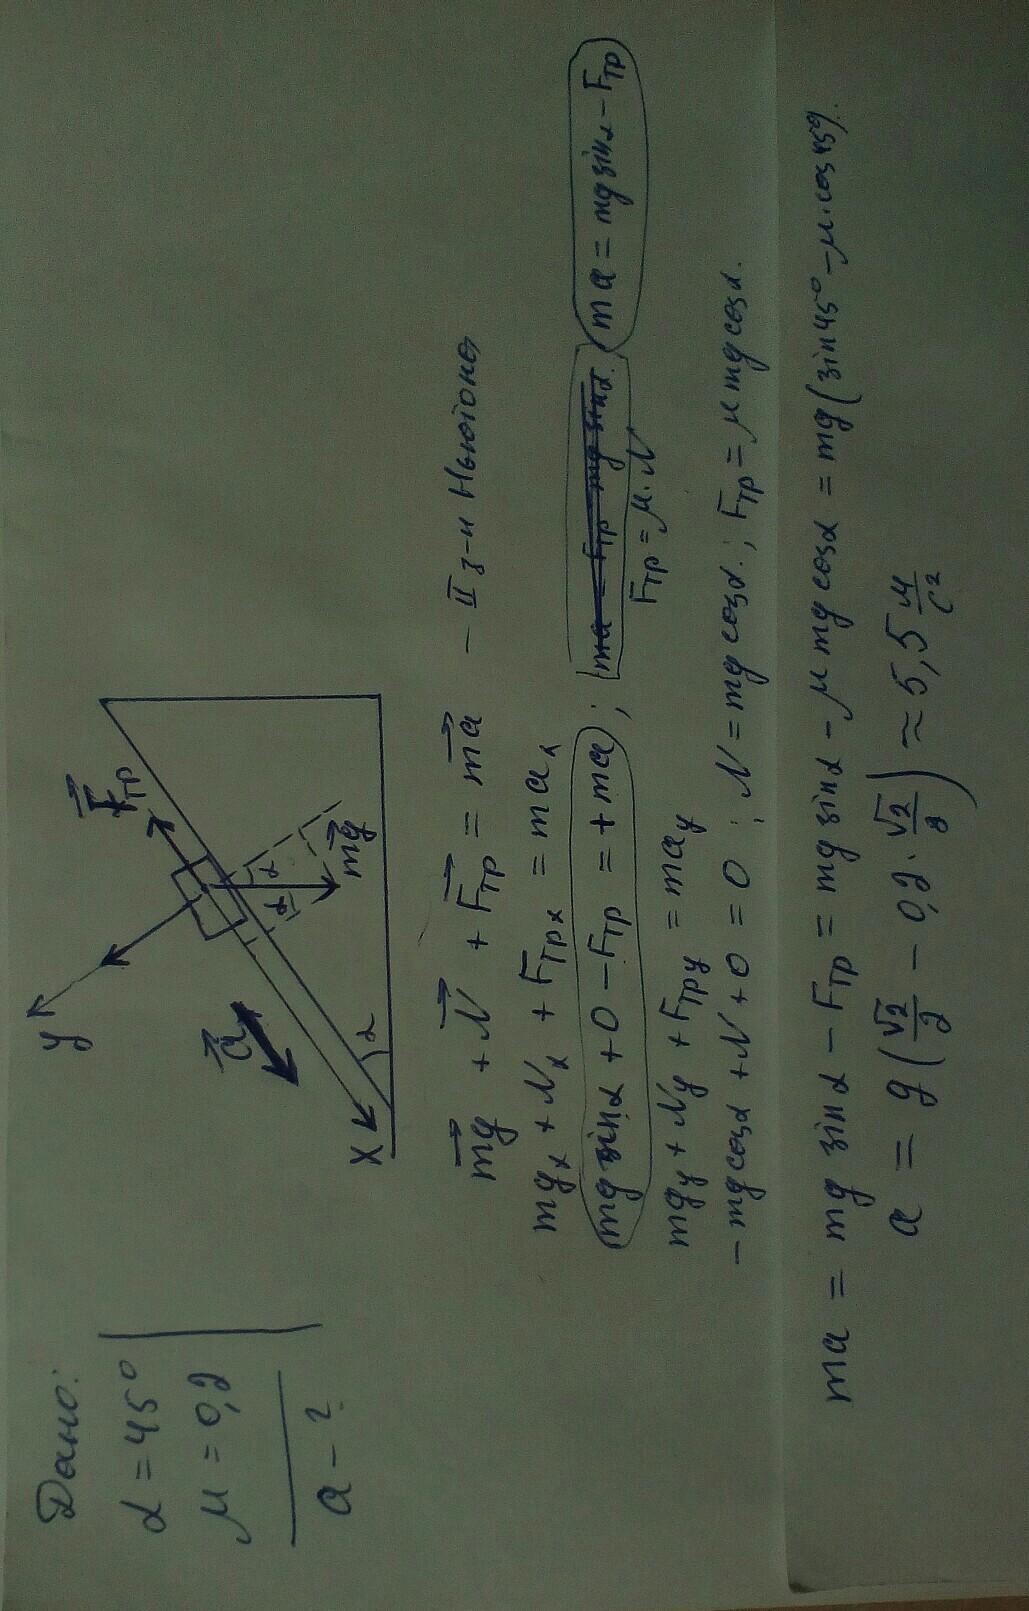 Дано:
α = 45°
μ = 0,2
a - ?
y
a⃗
X
α
F⃗тр
α
α
mg⃗
mg⃗ + N⃗ + F⃗тр = ma⃗ - II з-н Ньютона
mgx + Nx + Fтрx = max
mg sinα + 0 - Fтр = + ma ; ma = Fтр - mg sinα. ma = mg sinα - Fтр
Fтр = μ·N
mgy + Ny + Fтрy = may
- mg cosα + N + 0 = 0 ; N = mg cosα. ; Fтр = μ mg cosα.
ma = mg sinα - Fтр = mg sinα - μ mg cosα = mg (sin 45° - μ·cos 45°).
a = g (√2/2 - 0,2·√2/2) ≈ 5,5 м/с²